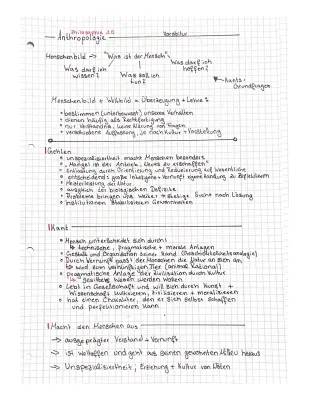 Philosophie 2.0
Anthropologie
Menschenbild -> "Was ist der Mensch"
Was darf ich wissen?
Was soll ich tun?
Was darf ich hoffen?
Kants
Grundfragen
Menschenbild + Weltbild = Überzeugung + Lehre:
bestimmen (unterbewusst) unseres Verhalten
dienen häufig als Rechtfertigung
nur Verständnis, keine Klärung von Fragen
verschiedene Auffassung, je nach Kultur + Vorstellung
Gehlen
unspezialisiertheit macht Menschen besonders
"Mangel ist der Antrieb, Neues zu erschaffen"
Entlastung durch Orientierung und Reduzierung auf Wesentliche
entscheidend: große Intelligenz + Vernunft
Ausgleich der biologischen Defizite
Probleme bringen uns weiter -> Suche nach Lösung
Institutionen
Kant
Mensch unterscheidet sich durch:
technische, pragmatische + morale Anlagen
Gestalt und Organisation seiner Hand
Durch Vernunft passt der Menschen die Natur an sich an
wird dem vernünftigen Tier (animal rationale)
pragmatische Anlage der Zivilisation durch Kultur
lebt in Gesellschaft und will sich durch Kunst +
Wissenschaft kultivieren, zivilisieren + moralisieren
hat einen Charakter, den er sich selbst schaffen
und perfektionieren kann
Macht den Menschen aus
-> ausgeprägter Verstand + Vernunft
-> ist weltoffen und geht aus seinen gewohnten Milieu heraus
-> Unspezialisiertheit, Erziehung + Kultur von Nöten